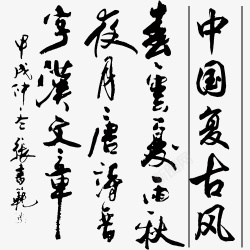 中国复古风
春云夏雨秋
夜月唐诗晋
字汉文章
甲戌仲冬张书范